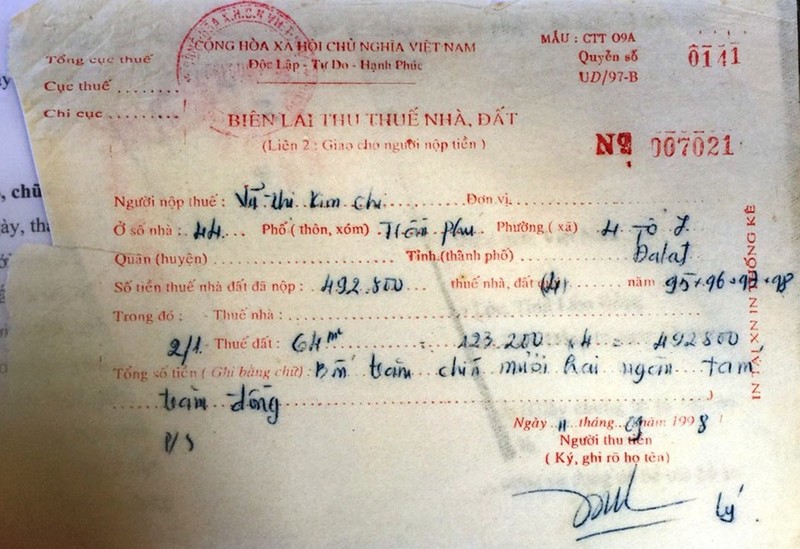 CỘNG HÒA XÃ HỘI CHỦ NGHĨA VIỆT NAM
Độc Lập - Tự Do - Hạnh Phúc
Tổng cục thuế
Cục thuế ........
Chi cục ........
MẪU : CTT 09A
Quyển số 0141
UD/97-B
BIÊN LAI THU THUẾ NHÀ, ĐẤT
(Liên 2 : Giao cho người nộp tiền )
Nº 007021
Người nộp thuế : Võ thi Kim Chi Đơn vị
Ở số nhà : 44 Phố (thôn, xóm) Trần Phú Phường (xã) 4 Tổ 7
Quận (huyện) Tỉnh (thành phố) Đalat
Số tiền thuế nhà đất đã nộp : 492.800 thuế nhà, đất quý (4) năm 95+96+97+98
Trong đó : Thuế nhà :
2/1 Thuế đất : 64m² = 123.200 x 4 = 492800
Tổng số tiền ( Ghi bằng chữ) Bốn trăm chín mười hai ngàn tám
trăm đồng
Ngày 11 tháng 09 năm 1998
Người thu tiền
( Ký, ghi rõ họ tên)
P/S
Lý
IN TẠI XN IN THỐNG KÊ